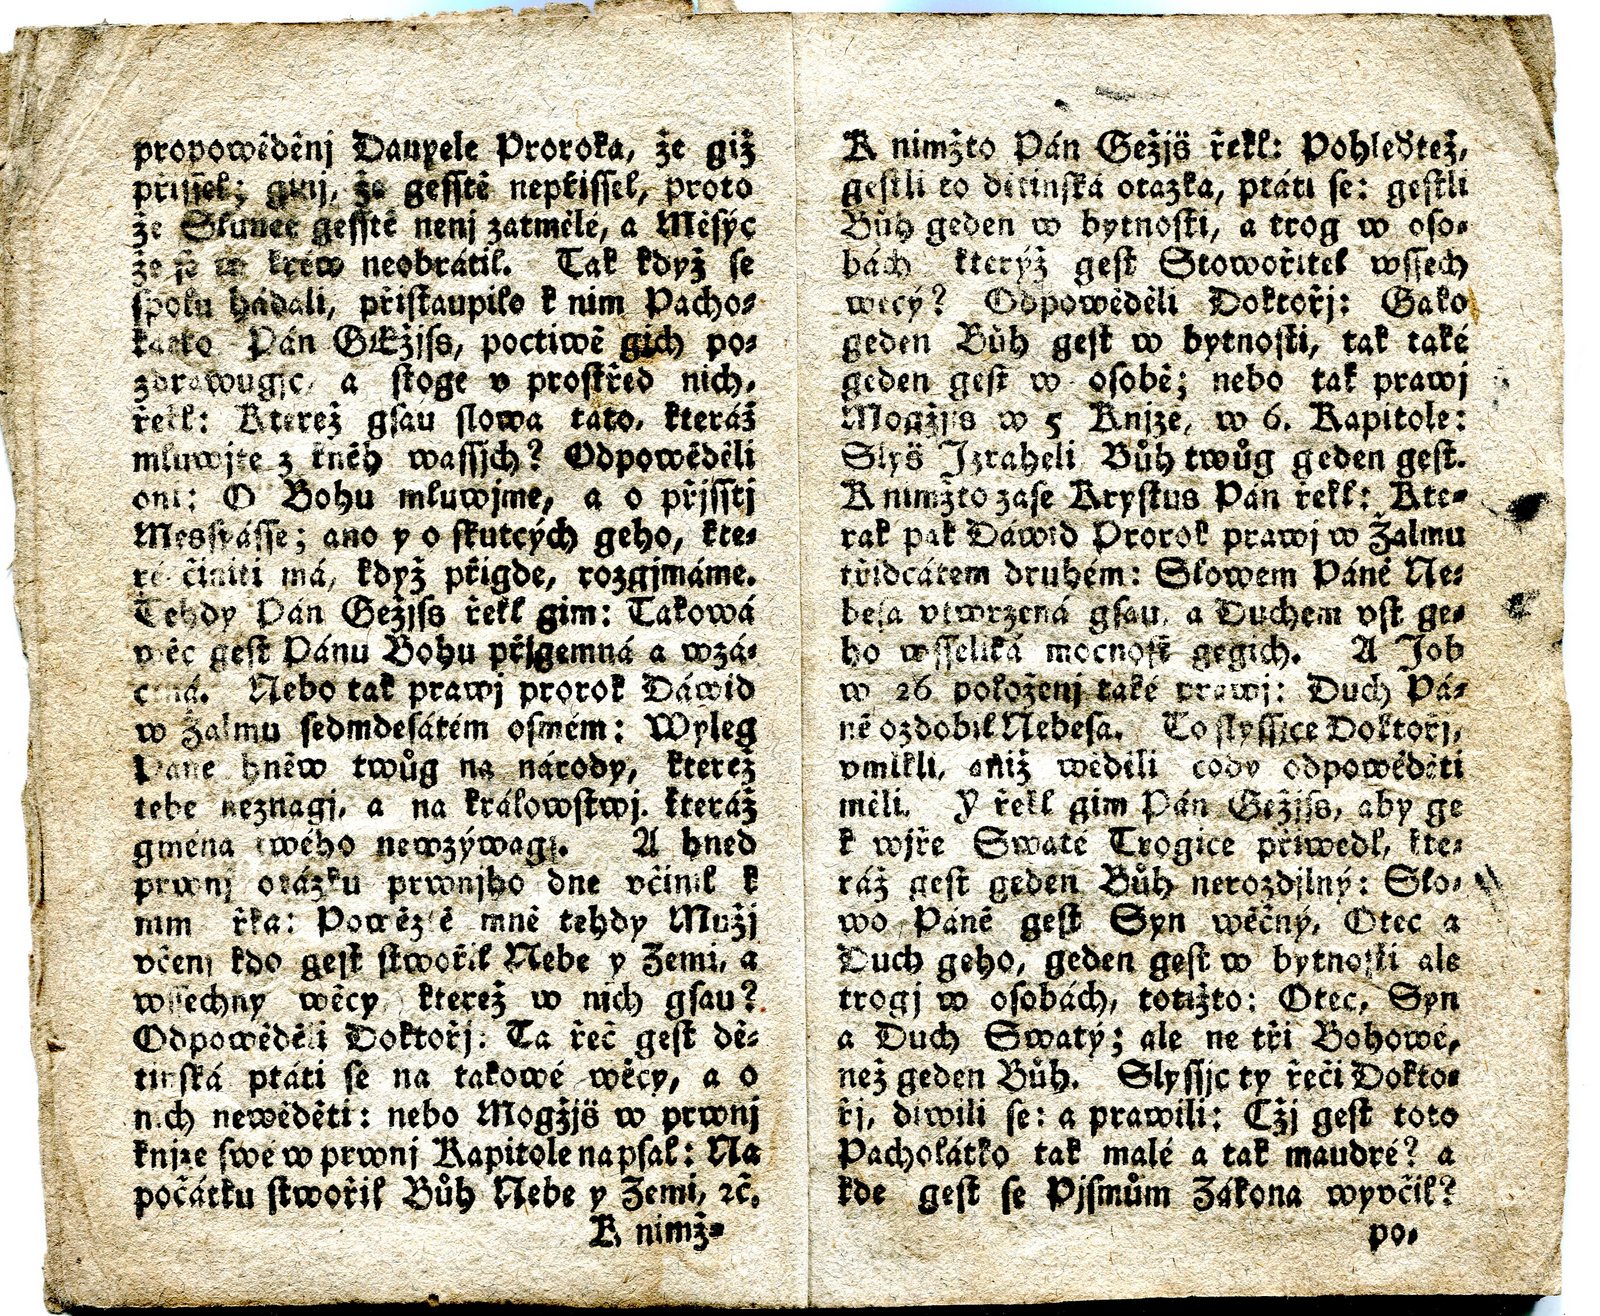 propowěděnj Danyele Proroka, že giž
přissel; ginj, že gesstě nepřissel, proto
že Slunce gesstě nenj zatmělé, a Měsýc
že se w krew neobrátil. Tak když se
spolu hádali, přistaupilo k nim Pacho-
látko Pán GEžjss, poctiwě gich po-
zdrawugjc, a stoge v prostřed nich,
řekl: Kterež gsau slowa tato, kteráž
mluwjte z kněh wassjch? Odpowěděli
oni: O Bohu mluwjme, a o přjsstj
Messyásse; ano y o skutcých geho, kte-
ré činiti má, když přigde, rozgjmáme.
Tehdy Pán Gežjss řekl gim: Takowá
wěc gest Pánu Bohu přjgemná a wzá-
cná. Nebo tak prawj prorok Dáwid
w Žalmu sedmdesátém osmém: Wyleg
Pane hněw twůg na národy, kterež
tebe neznagj, a na králowstwj, kteráž
gména twého newzýwagj. A hned
prwnj otázku prwnjho dne včinil k
nim řka: Powězte mně tehdy Mužj
včenj kdo gest stwořil Nebe y Zemi, a
wssechny wěcy, kterež w nich gsau?
Odpowěděli Doktořj: Ta řeč gest dě-
tinská ptáti se na takowé wěcy, a o
nich newěděti: nebo Mogžjš w prwnj
knjze swé w prwnj Kapitole napsal: Na
počátku stwořil Bůh Nebe y Zemi, ꝛč.
K nimž-
K nimžto Pán Gežjš řekl: Pohleďtež,
gestli to dětinská otazka, ptáti se: gestli
Bůh geden w bytnosti, a trog w oso-
bách kterýž gest Stowořitel wssech
wěcý? Odpowěděli Doktořj: Gako
geden Bůh gest w bytnosti, tak také
geden gest w osobě; nebo tak prawj
Mogžjs w 5 Knjze, w 6. Kapitole:
Slyš Jzraheli Bůh twůg geden gest.
K nimžto zase Krystus Pán řekl: Kte-
rak pak Dáwid Prorok prawj w Žalmu
třidcátém druhém: Slowem Páně Ne-
besa vtwrzená gsau, a Duchem vst ge-
ho wsseliká mocnost gegich. A Job
w 26 položenj také prawj: Duch Pá-
ně ozdobil Nebesa. To slyssjce Doktořj,
vmlkli, aniž wěděli coby odpowěděti
měli. Y řekl gim Pán Gežjss, aby ge
k wjře Swaté Trogice přiwedl, kte-
ráž gest geden Bůh nerozdjlný: Slo-
wo Páně gest Syn wěčný, Otec a
Duch geho, geden gest w bytnosti ale
trogj w osobách, totižto: Otec, Syn
a Duch Swatý; ale ne tři Bohowé,
než geden Bůh. Slyssjc ty řeči Dokto-
řj, diwili se: a prawili: Cžj gest toto
Pacholátko tak malé a tak maudré? a
kde gest se Pjsmům Zákona wyvčil?
po-